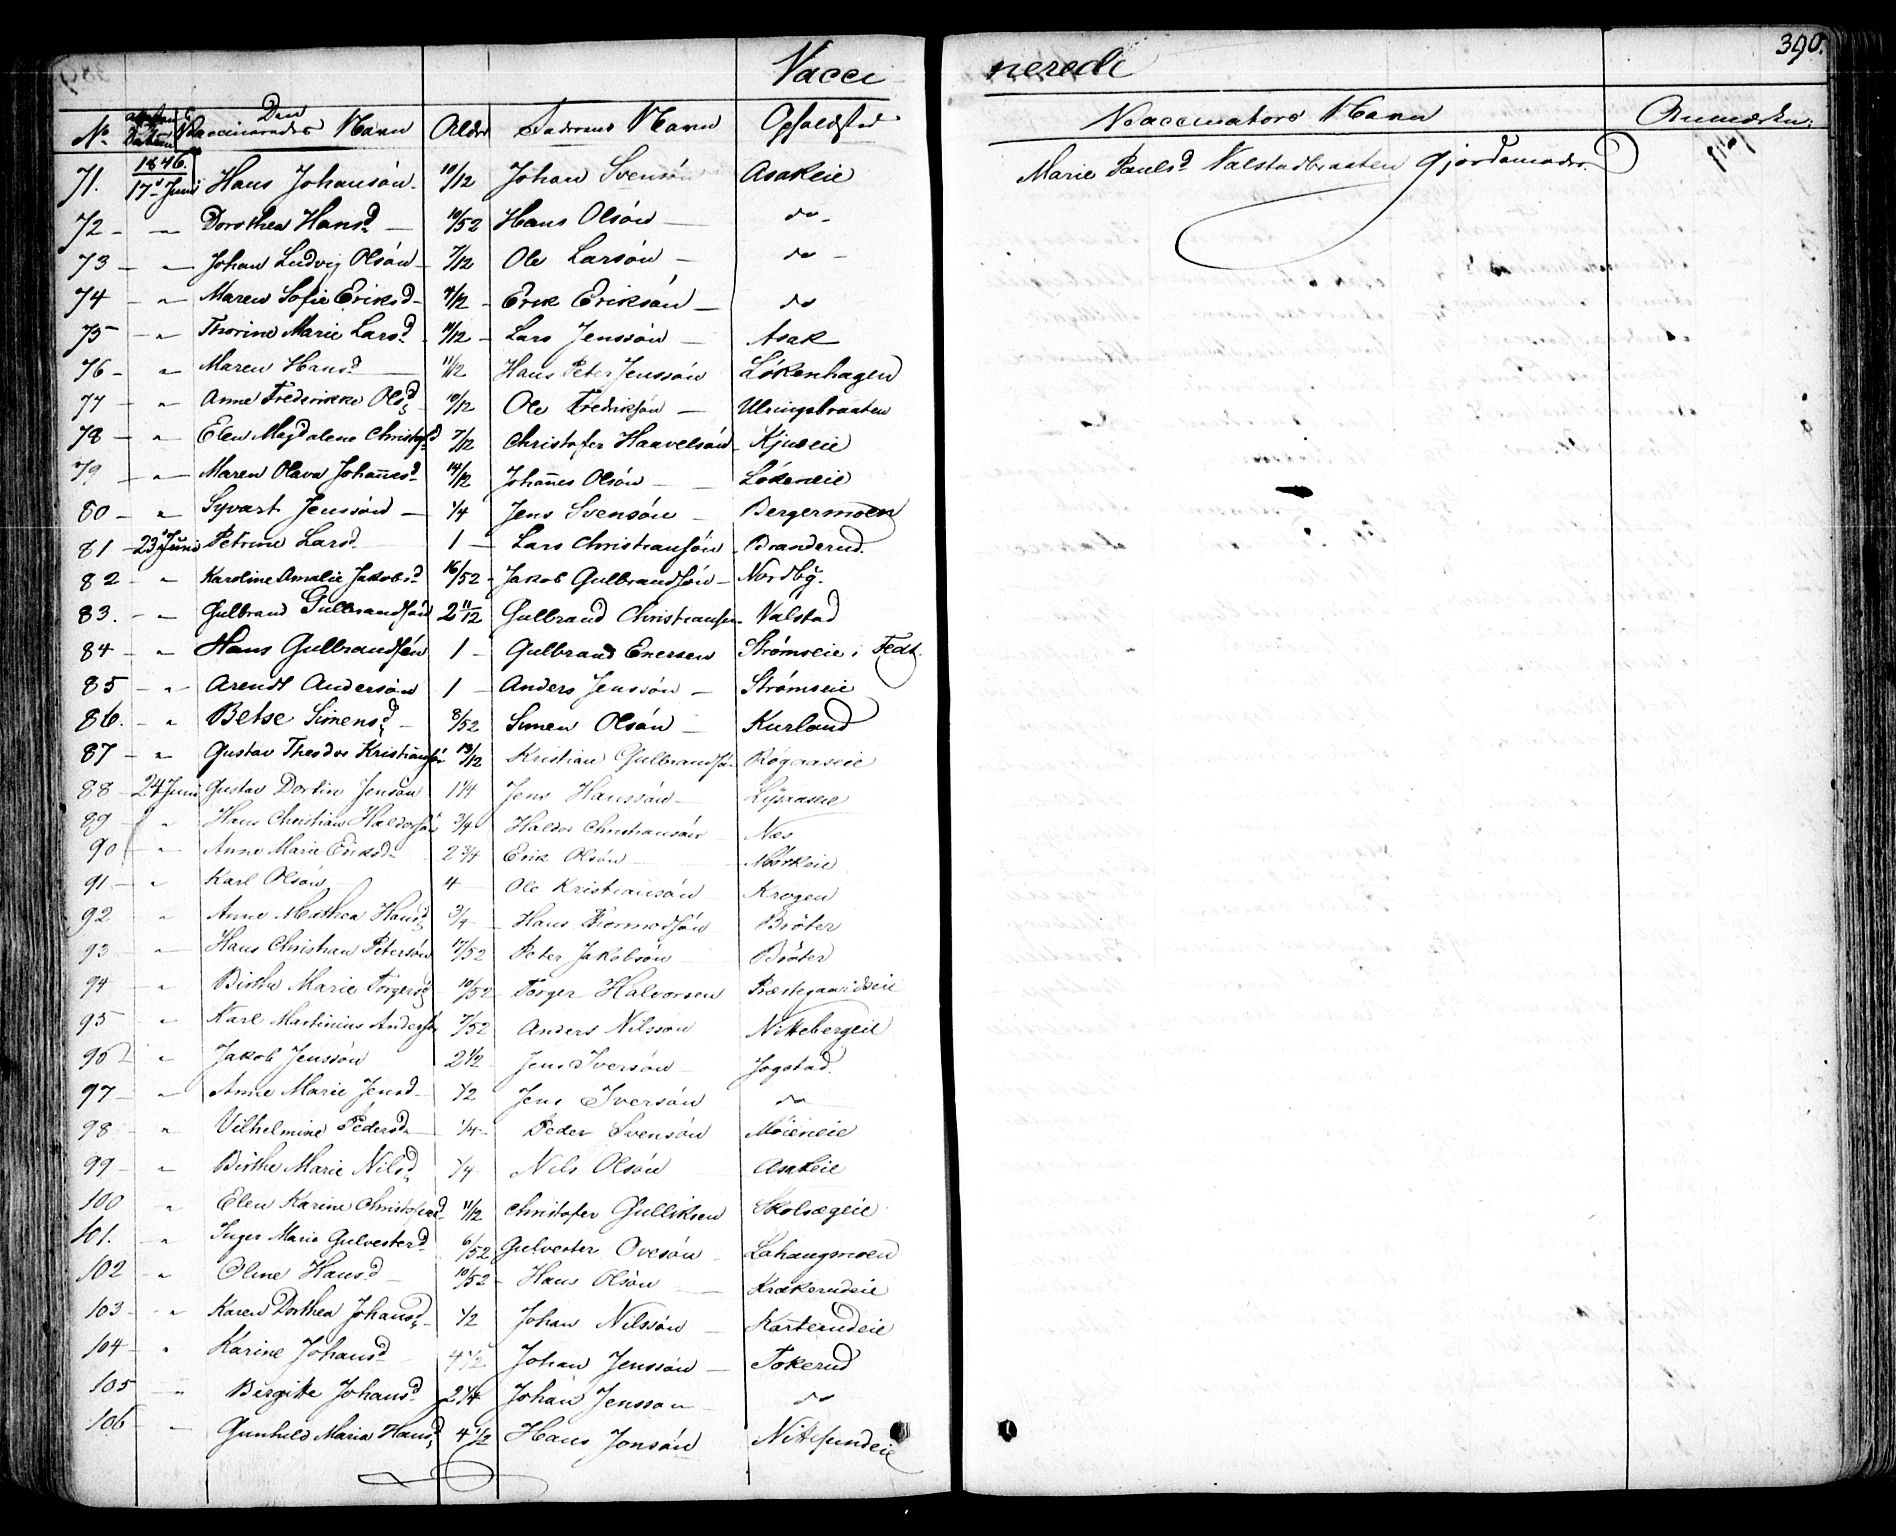 390.
Vaccinerede
No. Datum Den Vaccineredes Navn Alder Faderens Navn Opholdsted Vaccinators Navn Anmærkn:
1846.
71. 17d Juni Hans Johansön 10/12 Johan Svensön Asakeie Marie Paulsd Valstadbraaten Gjordemoder
72 - " Dorothea Hansd. 10/52 Hans Olsön do
73 - " Johan Ludvig Olsön 7/12 Ole Larsön do
74 - " Maren Sofie Eriksd - Erik Eriksön do
75 - " Thorine Marie Larsd. Lars Jenssön Asak
76 - " Maren Hansd. 11/12 Hans Peter Jenssön Lökenhagen
77 - " Anne Frederikke Olsd. 10/12 Ole Fredriksön Ulringsbraaten
78 - " Elen Magdalene Christofd 7/12 Christofer Haavelsön Kjuseie
79 - " Maren Olava Johannesd 14/12 Johannes Olsön Lökeneie
80 - " Syvart Jenssön 1/4 Jens Svensön Bergermoen
81 - 23 Juni Petrine Larsd 1 Lars Christiansön Branderud.
82 - " Karoline Amalie Jakobsd 16/52 Jakob Gulbrandsön Nordby.
83. - " Gulbrand Gulbrandsön 2 11/12 Gulbrand Christiansen Valstad
84 - " Hans Gulbrandsön 1 Gulbrand Enersen Strömseie i Fedt.
85 - " Arendt Andersön 1 Anders Jenssön Strömseie
86. - " Betse Simensd. 8/52 Simen Olsön Kurland
87 - " Gustav Theodor Kristiansön 13/12 Kristian Gulbrandsön Rögaaseie
88 - 24 Juni Gustav Dortin Jensön 1 1/4 Jens Hanssön Lysaaseie
89 - " Hans Christian Haldorsön 3/4 Haldor Christiansön Næs
90 - " Anne Marie Eriksd 2 3/4 Erik Olsön Mörkeie
91 - " Karl Olsön 4 Ole Kristiansön Krogen
92 " Anne Mathea Hansd 3/4 Hans Thormodsön Bröter
93 - " Hans Christian Petersön 17/52 Peter Jakobsön Bröter
94 - " Birthe Marie Torgersd 10/52 Torger Halvorsen Præstegaardseie
95 - " Karl Martinius Andersön 7/52 Anders Nilssön Nittebergeie
96 - " Jakob Jenssön 2 1/2 Jens Iversön Jogstad.
97 - " Anne Marie Jensd 1/2 Jens Iversön do
98 - " Vilhelmine Pedersd. 1/4 Peder Svensön Möieneie
99 - " Birthe Marie Nilsd. 1/4 Nils Olsön Asakeie
100 " Elen Karine Christofersd 11/12 Christofer Gulliksen Skolsægeie
101. - " Inger Marie Gulvesterd. 6/52 Gulvester Ovesön Lohaugsmoen
102 - " Oline Hansd 10/52 Hans Olsön Krakerudeie
103 - " Karen Dorthea Johansd. 1/2 Johan Nilssön Karterudeie
104 - " Karine Johansd 4 1/2 Johan Jenssön Tokerud
105 " Birgitte Johansd 2 1/4 Johan Jensson do
106 - " Gunhild Maria Hansd. 4 1/2 Hans Jonsön Nittesundeie